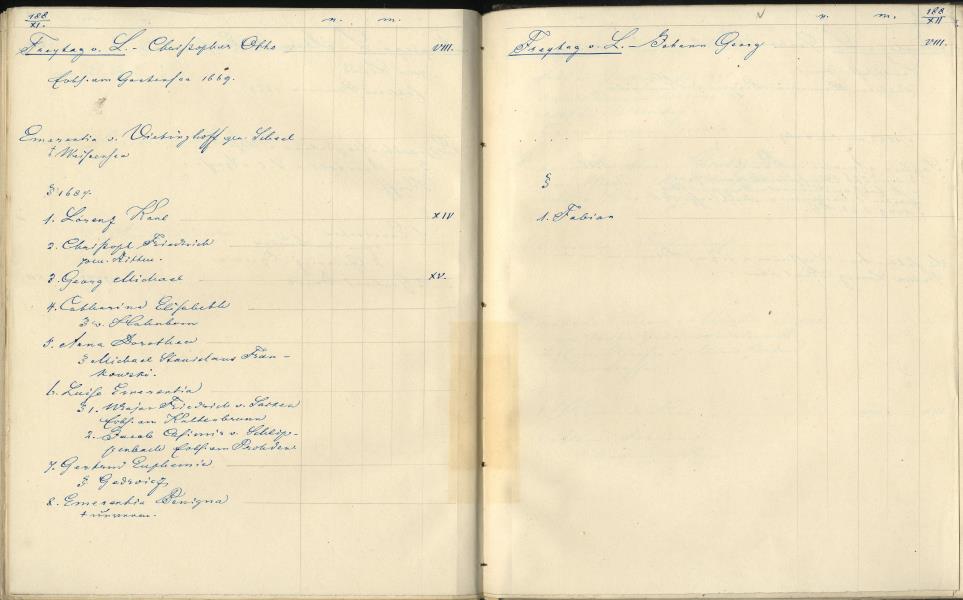 188
XI.
v. m.
Freytag v. L. - Christopher Otto VIII.
Erbh. am Gartensee 1669.
Emerentia v. Vietinghoff gen. Scheel
† Weissensee
§ 1684.
1. Lorenz Karl XIV
2. Christoph Friedrich
3. Georg Michael XV.
4. Catharina Elisabeth
§ v. Hahnbom
5. Anna Dorothea
§ Michael Stanislaus Fran-
kowski.
6. Luise Emerentia
§ 1. Major Friedrich v. Sacken
Erbh. am Kaltenbrunn
2. Jacob Casimir v. Schlip-
penbach Erbh. am Prohden
7. Gertrud Euphemia
§
8. Emerentia Benigna
†
188
XII
v. m.
Freytag v. L. - Johann Georg VIII.
§
1. Fabian